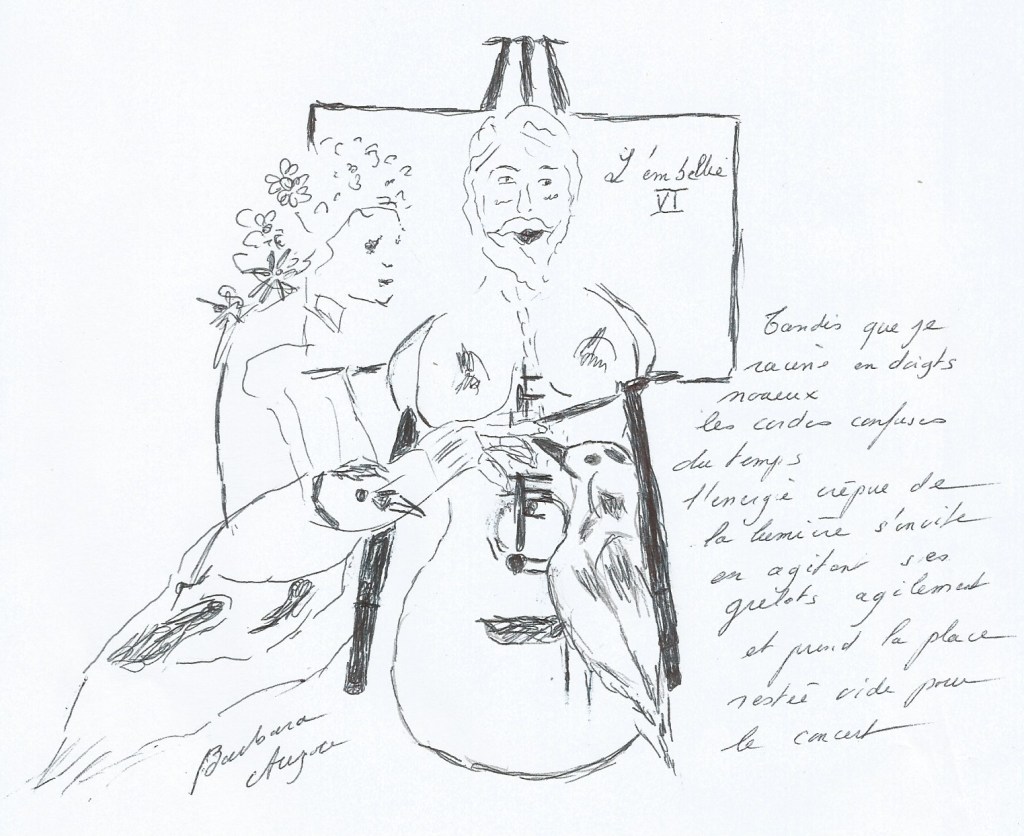 L'embellie
VI
Tandis que je
racine en doigts
noueux
les cordes confuses
du temps
l'énergie crépue de
la lumière s'invite
en agitant ses
grelots agilement
et prend la place
restée vide pour
le concert
Barbara
Auzou